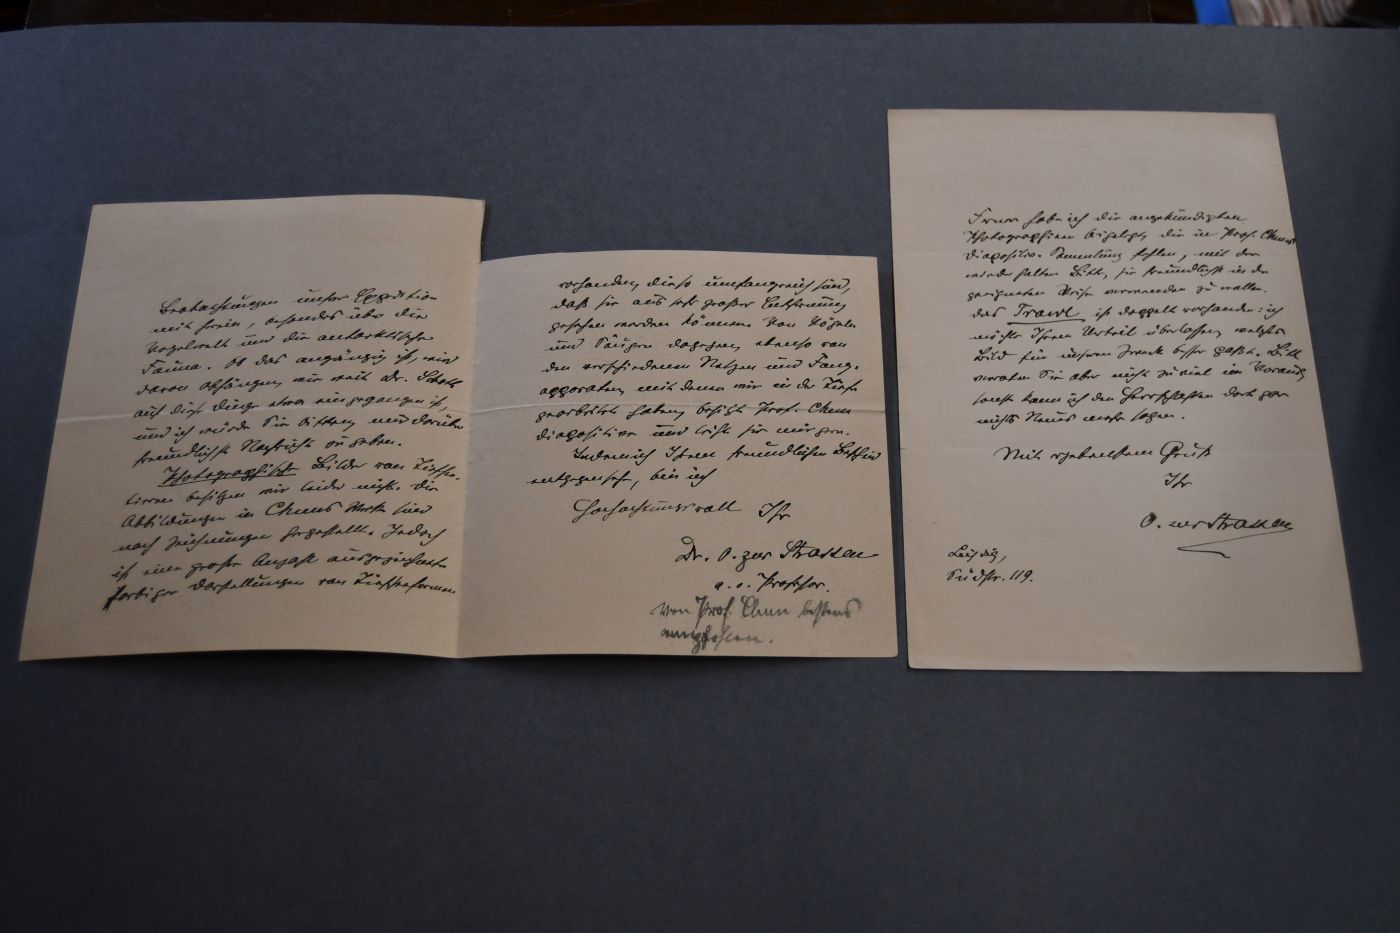 Beobachtungen unsrer Expedition
mit sein, besonders über die
Vogelwelt und die antarktische
Fauna. Ob das angängig ist, wird
davon abhängen, wie weit Dr. Schott
auf diese Dinge etwa eingegangen ist,
und ich würde Sie bitten, mir darüber
freundlichst Nachricht zu geben.
Photographische Bilder von Tiefsee-
tieren besitzen wir leider nicht. Die
Abbildungen in Chuns Werke sind
nach Zeichnungen hergestellt. Jedoch
ist eine große Anzahl ausgezeichneter
farbiger Darstellungen von Tiefseeformen
vorhanden, diese umfangreich sind,
daß sie aus sehr großer Entfernung
gesehen werden können. Von Vögeln
und Säugern dagegen, ebenso von
den verschiedenen Netzen und Fang-
apparaten, mit denen wir in der Tiefe
gearbeitet haben, besitzt Prof. Chun
Diapositive und leiht sie mir gern.
Indem ich Ihrem freundlichen Bescheid
entgegensehe, bin ich
Hochachtungsvoll Ihr
Dr. O. zur Strassen
a. o. Professor.
von Prof. Chun bestens
empfohlen.
Ferner habe ich die angekündigten
Photographieen beigelegt, die in Prof. Chuns
Diapositiv-Sammlung fehlen, mit der
wiederholten Bitte, sie freundlichst in der
geeigneten Weise verwenden zu wollen.
Das Trawl ist doppelt vorhanden: ich
möchte Ihrem Urteil überlassen, welches
Bild für unseren Zweck besser paßt. Bitte
verraten Sie aber nicht zu viel im Voraus,
sonst kann ich den Herrschaften dort gar
nichts Neues mehr sagen.
Mit ergebenstem Gruß
Ihr
O. zur Strassen
Leipzig,
Südstr. 119.